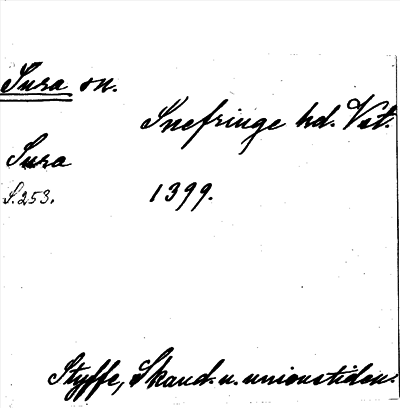 Sura sn.
Snefringe hd. Vst.
Sura
S. 253. 1399.
Styffe, Skand. u. unionstiden.